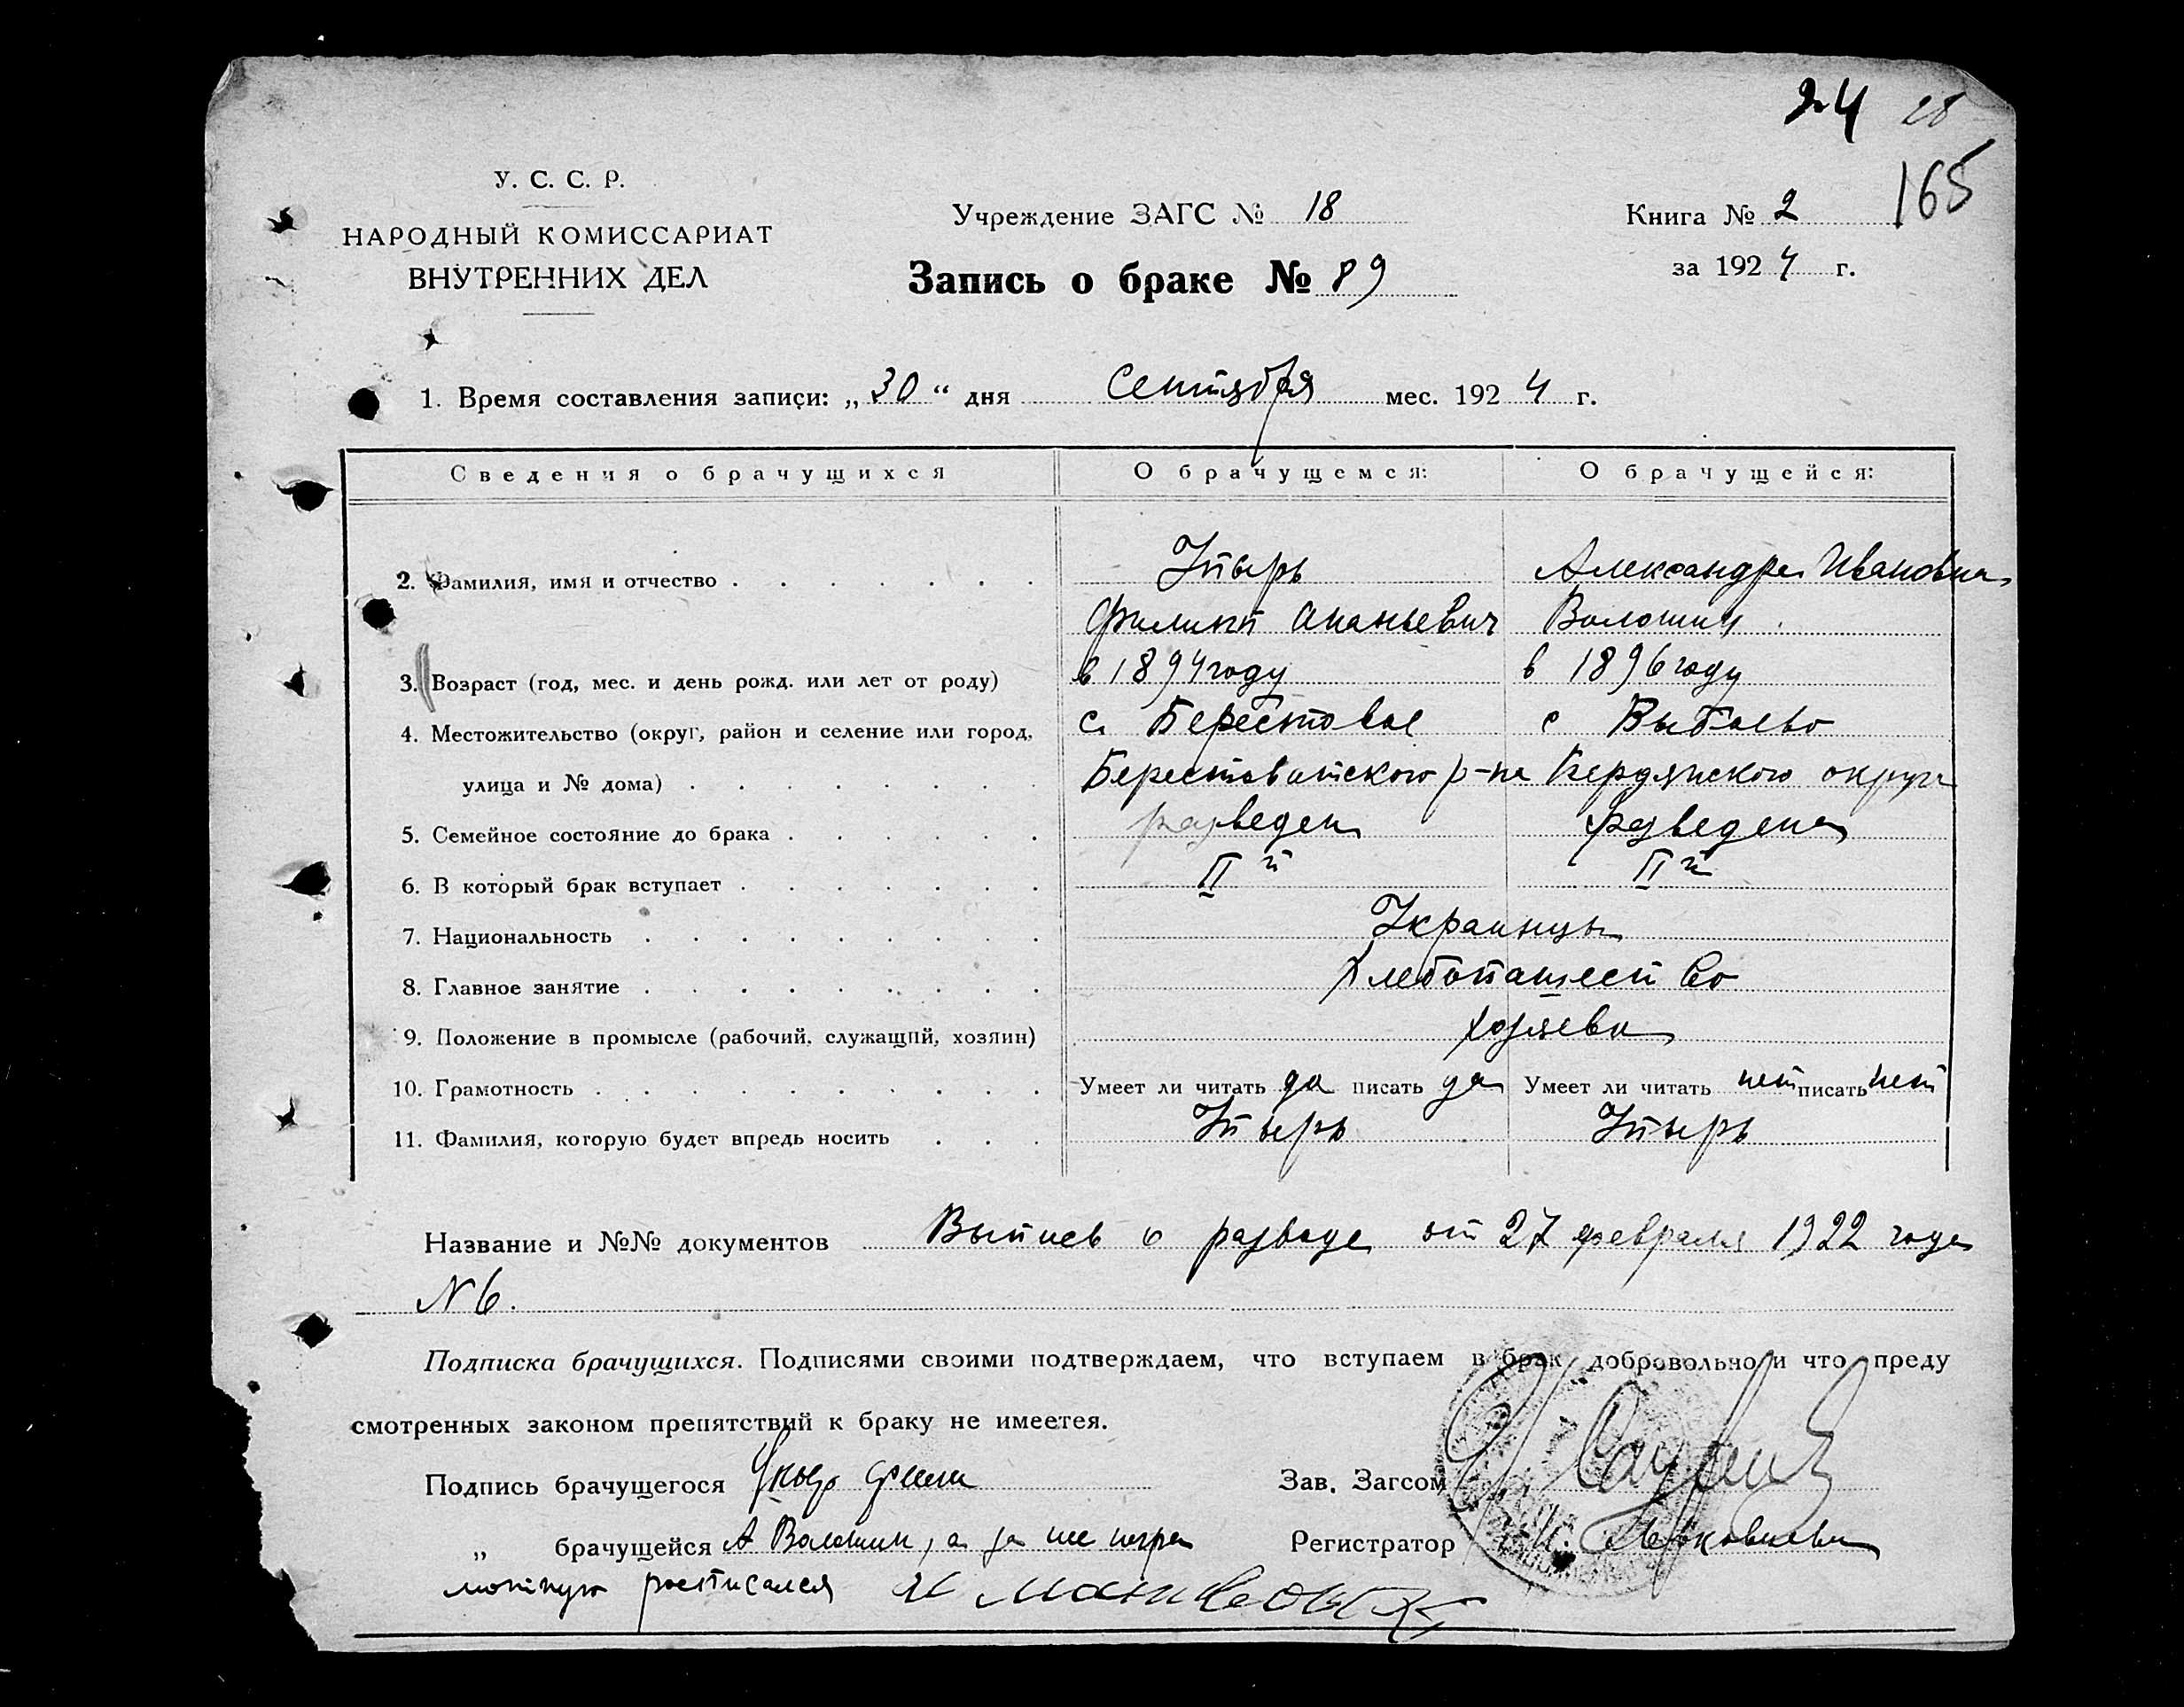 24 28
165
У. С. С. Р.
НАРОДНЫЙ КОМИССАРИАТ
ВНУТРЕННИХ ДЕЛ
Учреждение ЗАГС № 18
Книга № 2
за 1924 г.
Запись о браке № 89
1. Время составления записи: „30“ дня Сентября мес. 1924 г.
Сведения о брачущихся О брачущемся: О брачущейся:
2. Фамилия, имя и отчество Упырь Александра Ивановна
Филипп Ананьевич Волошин
3. Возраст (год, мес. и день рожд. или лет от роду) в 1894 году в 1896 году
4. Местожительство (округ, район и селение или город, с. Берестовое с
улица и № дома) Берестоватского р-на Бердянского округа
5. Семейное состояние до брака разведен разведена
6. В который брак вступает II й II й
7. Национальность Украинцы
8. Главное занятие Хлебопашество
9. Положение в промысле (рабочий, служащий, хозяин) хозяева
10. Грамотность Умеет ли читать да писать да Умеет ли читать нет писать нет
11. Фамилия, которую будет впредь носить Упырь Упырь
Название и №№ документов Выпись о разводе от 27 февраля 1922 года
N 6.
Подписка брачущихся. Подписями своими подтверждаем, что вступаем в брак добровольно и что преду
смотренных законом препятствий к браку не имеется.
Подпись брачущегося
Зав. Загсом
„ брачущейся А Волошин, а за не негра
мотную росписался
Регистратор